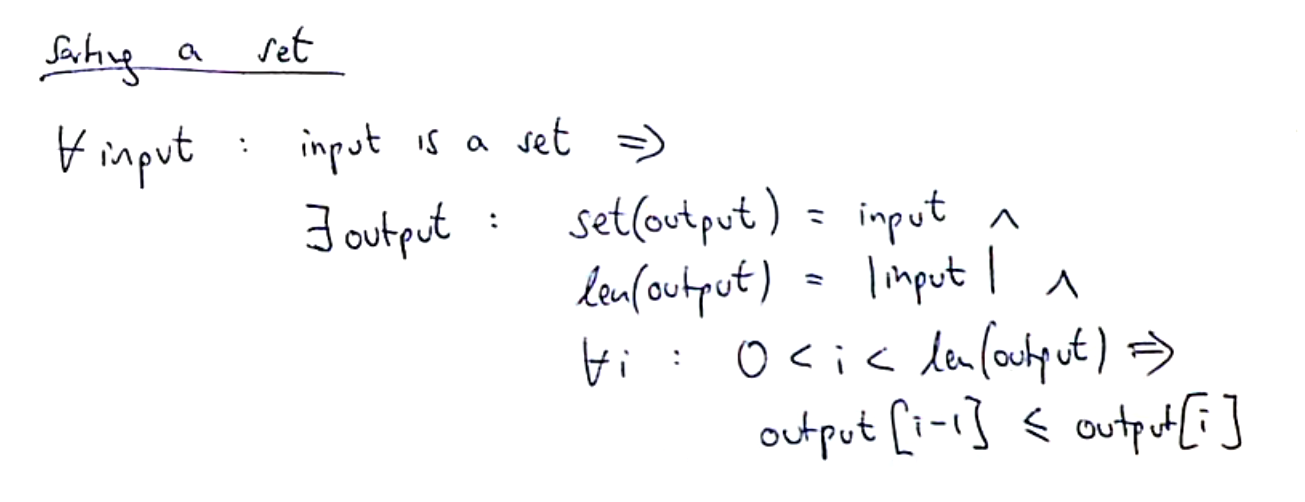 Sorting a set
∀ input : input is a set ⇒
∃ output : set(output) = input ∧
len(output) = |input| ∧
∀i : 0 < i < len(output) ⇒
output[i-1] ≤ output[i]